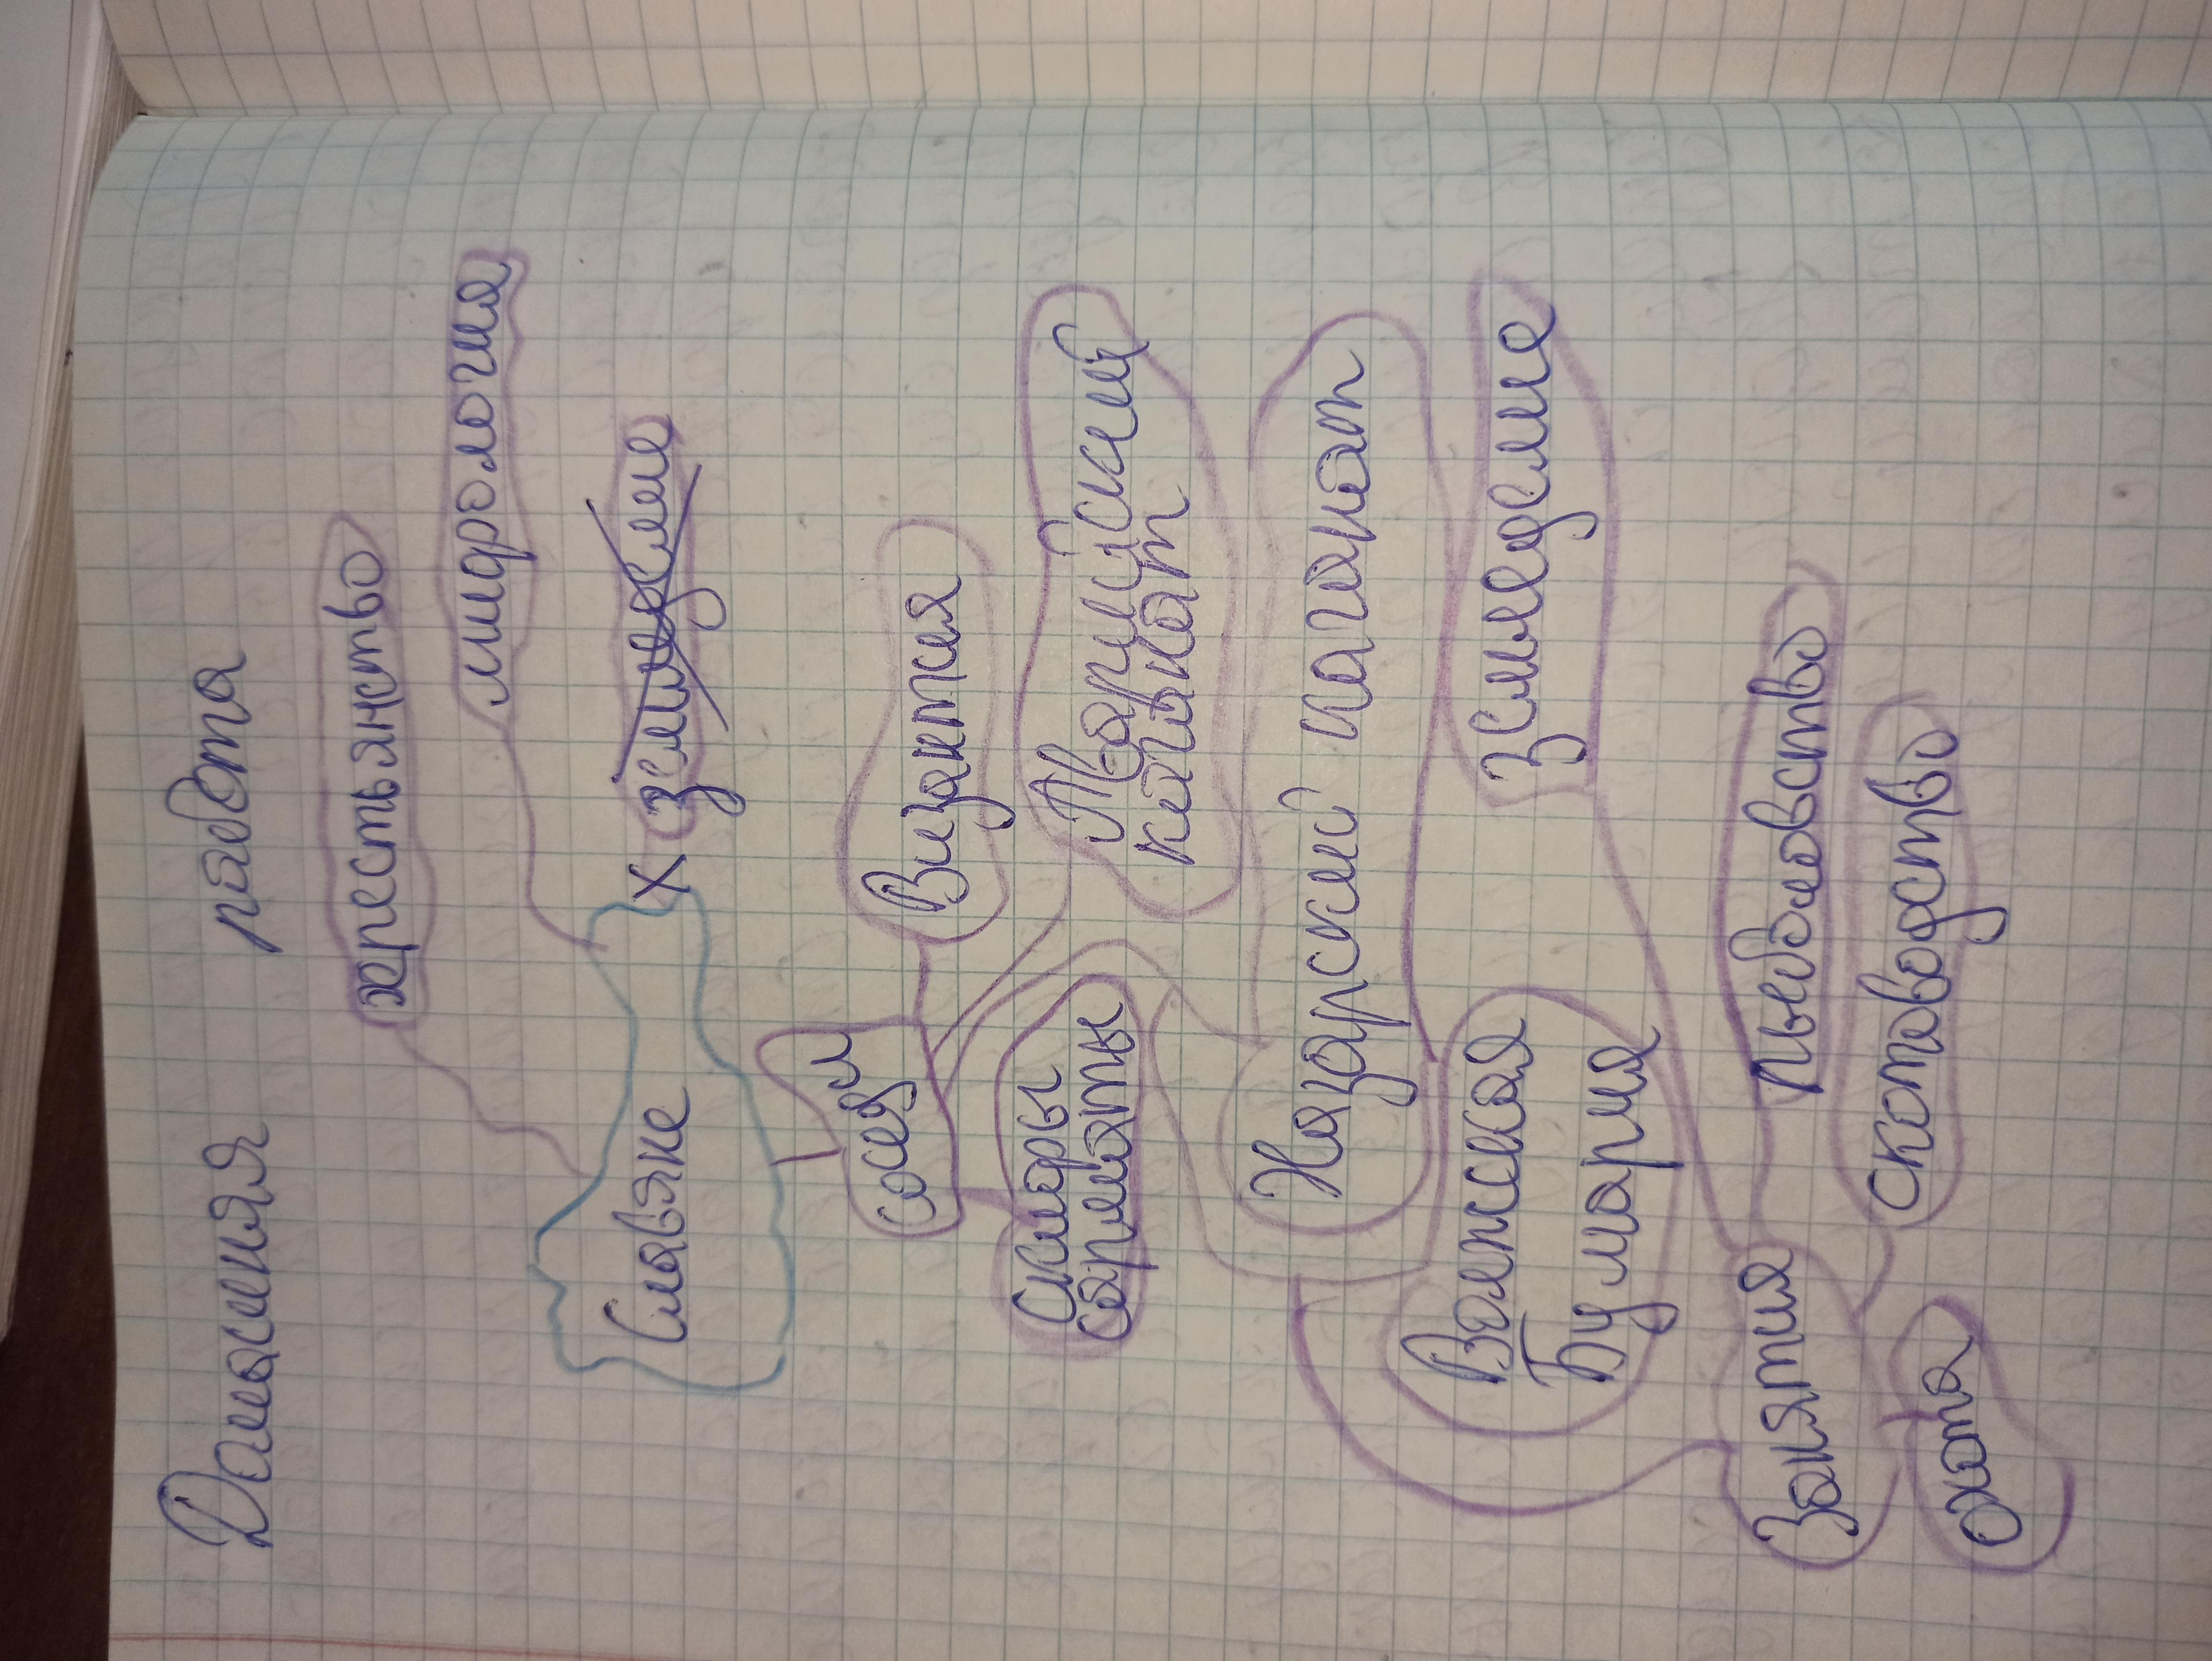 Домашняя работа
хрестьянство
мифология
Славяне х земледелие
соседи
Византия
Скифы
сарматы
Тюркский
каганат
Хазарский каганат
Волжская
Булгария
Земледелие
Занятия
Рыболовство
скотоводство
охота